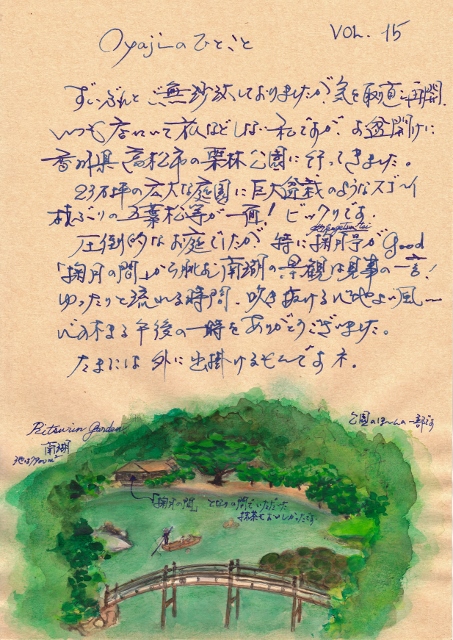 Oyajiのひとこと VOL. 15
ずいぶんとご無沙汰しておりましたが、気を取直し再開。
いつも店にいて旅などしない私ですが、お盆開けに
香川県高松市の栗林公園に行ってきました。
23万坪の広大な庭園に巨大盆栽のようなスゴーイ
枝ぶりの五葉松等が一面! ビックリです。
圧倒的なお庭でしたが 特に掬月亭がGood
「掬月の間」から眺む南湖の景観は見事の一言!
ゆったりと流れる時間、吹き抜ける心地よい風一
心休まる午後の一時をありがとうございました。
たまには外に出掛けるもんですネ。
Ritsurin Garden
南湖
公園のほーんの一部です
「掬月の間」 となりの間でいただいた
抹茶もおいしかったです